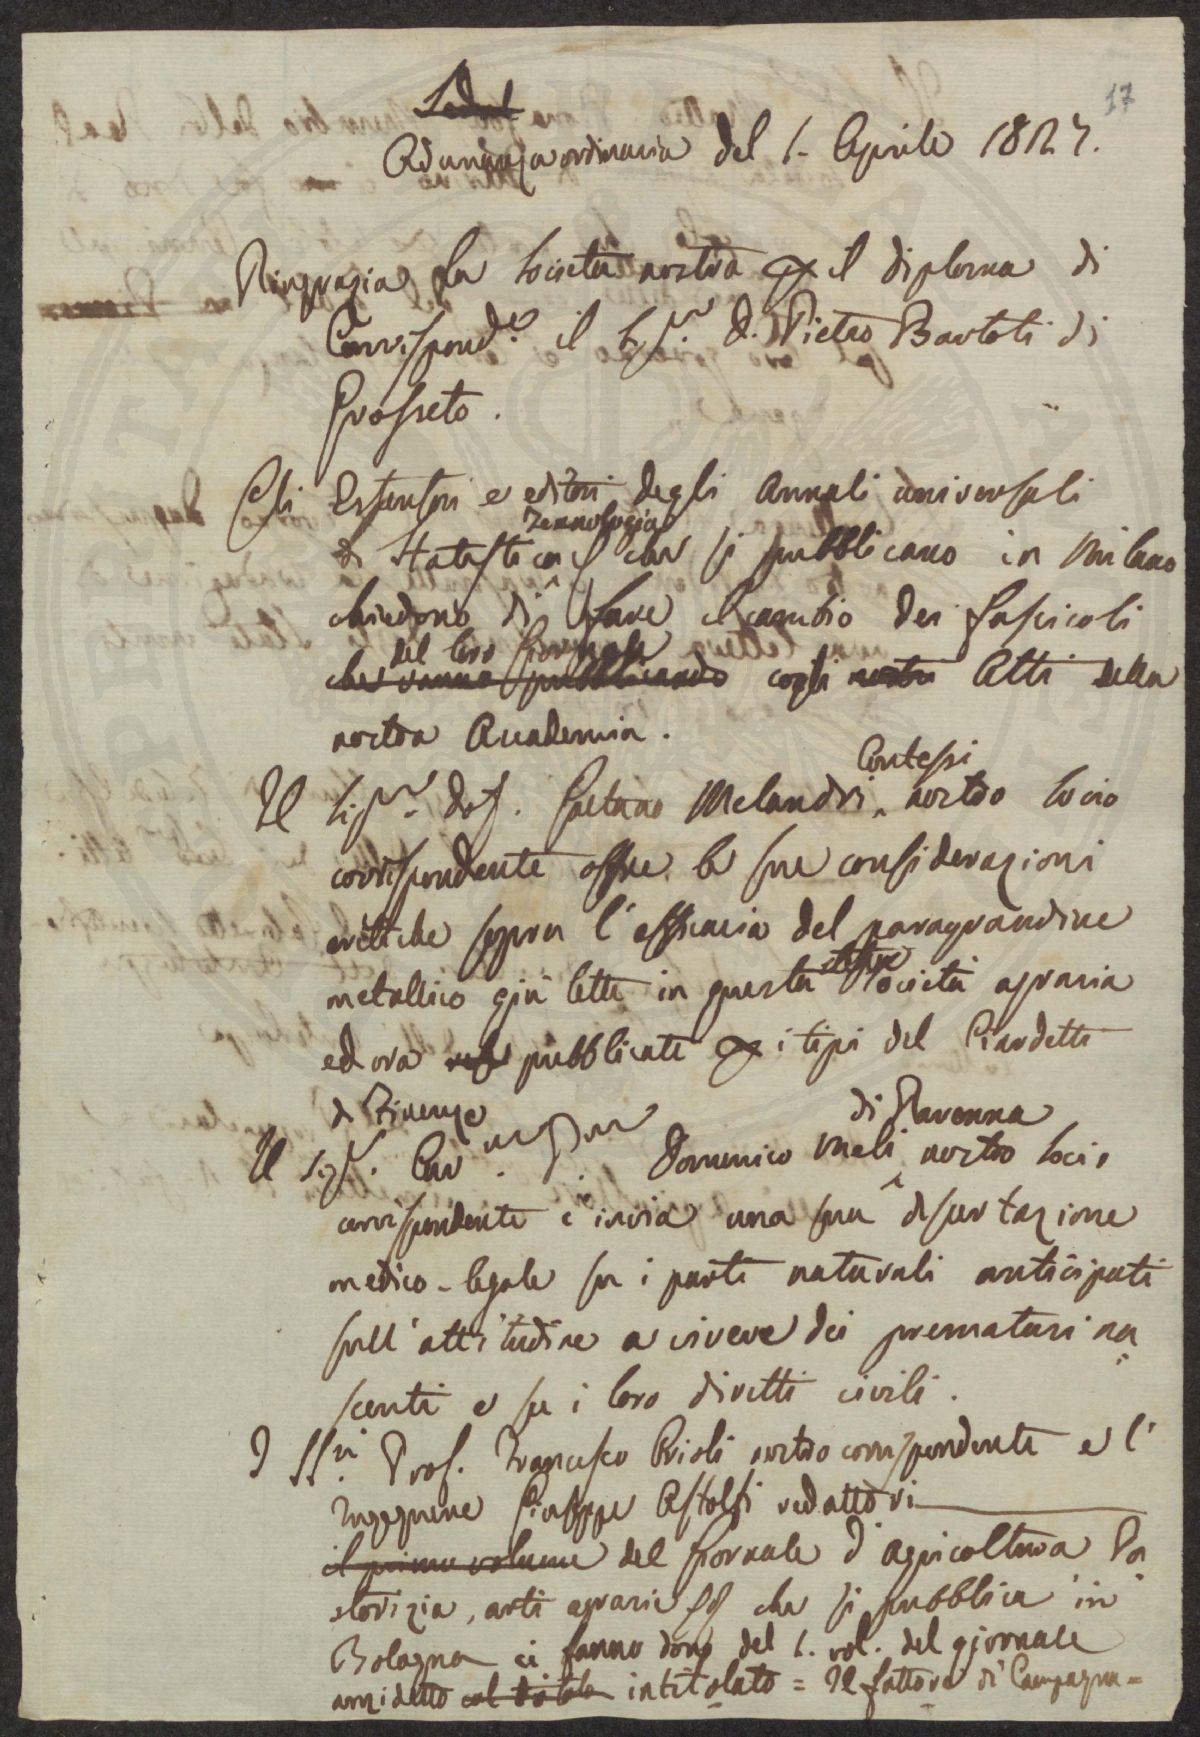 17
Adunanza ordinaria del 1. Aprile 1827.
Ringrazia la Società nostra per il diploma di
Corrispond.e il Sig.r D. Pietro Bartoli di
Grosseto.
Gli Estensori e editori degli Annali universali
Tecnologia
di Statistica che si pubblicano in Milano
chiedono di fare il cambio dei fascicoli
del loro Giornale
che vanno pubblicando cogli nostri Atti della
nostra Accademia.
Contessi
Il Sig.r Dot. Gaetano Melandri nostro Socio
corrispondente offre le sue considerazioni
critiche sopra l'efficacia del paragrandine
stessa
metallico già lette in questa Società agraria
ed ora pubblicate per i tipi del Ciardetti
di Firenze
di Ravenna
Il Sig.r Cav. Domenico Meli nostro Socio
corrispondente c'invia una sua disertazione
medico-legale su i parti naturali anticipati
sull'attitudine a vivere dei prematuri na
scenti e su i loro diritti civili.
I SS.ri Prof. Francesco Orioli nostro corrispondente e l'
Ingegnere Giuseppe Astolfi redattori
il primo volume del Giornale d'agricoltura Pa
storizia, arti agrarie che si pubblica in
Bologna ci fanno dono del 1. vol. del giornale
anzidetto col titolo intitolato = Il fattore di Campagna =